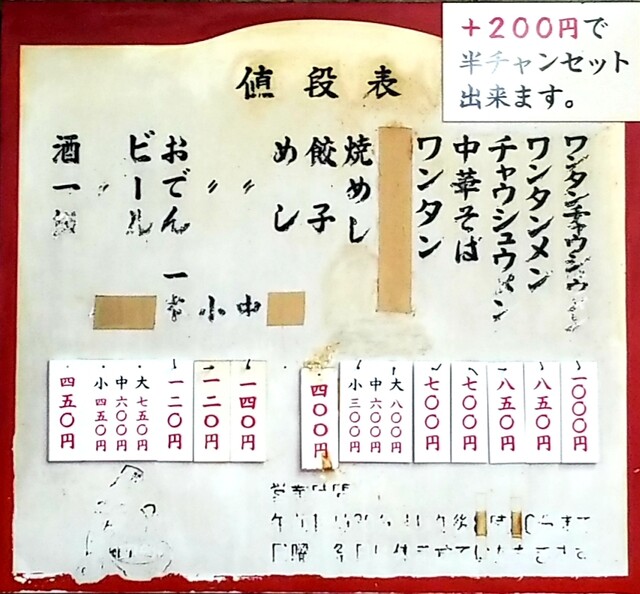 +200円で
半チャンセット
出来ます。
値段表
ワンタンチャウシュウ
ワンタンメン
チャウシュウメン
中華そば
ワンタン
焼めし
餃子
めし
〃 中
〃 小
おでん 一
ビール
〃
酒一級
一〇〇〇円
八五〇円
八五〇円
七〇〇円
七〇〇円
大八〇〇円
中六〇〇円
小三〇〇円
四〇〇円
一四〇円
一二〇円
一二〇円
大七五〇円
中六〇〇円
小四五〇円
四五〇円